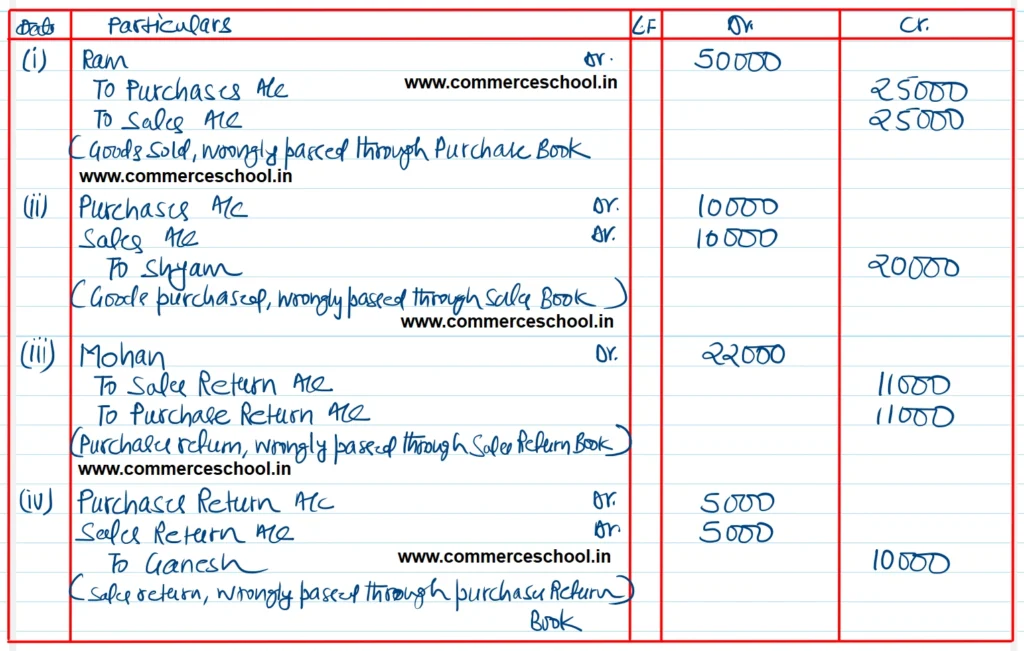 Date Particulars L.F Dr. Cr.
(i) Ram Dr. 50000
www.commerceschool.in
To Purchases A/c 25000
To Sales A/c 25000
(Goods sold, wrongly passed through Purchase Book
www.commerceschool.in
(ii) Purchases A/c Dr. 10000
Sales A/c Dr. 10000
To Shyam 20000
(Goods purchased, wrongly passed through Sales Book)
www.commerceschool.in
(iii) Mohan Dr. 22000
To Sales Return A/c 11000
To Purchase Return A/c 11000
(Purchase return, wrongly passed through Sales Return Book)
www.commerceschool.in
(iv) Purchases Return A/c Dr. 5000
Sales Return A/c Dr. 5000
www.commerceschool.in
To Ganesh 10000
(Sales return, wrongly passed through purchases Return)
Book